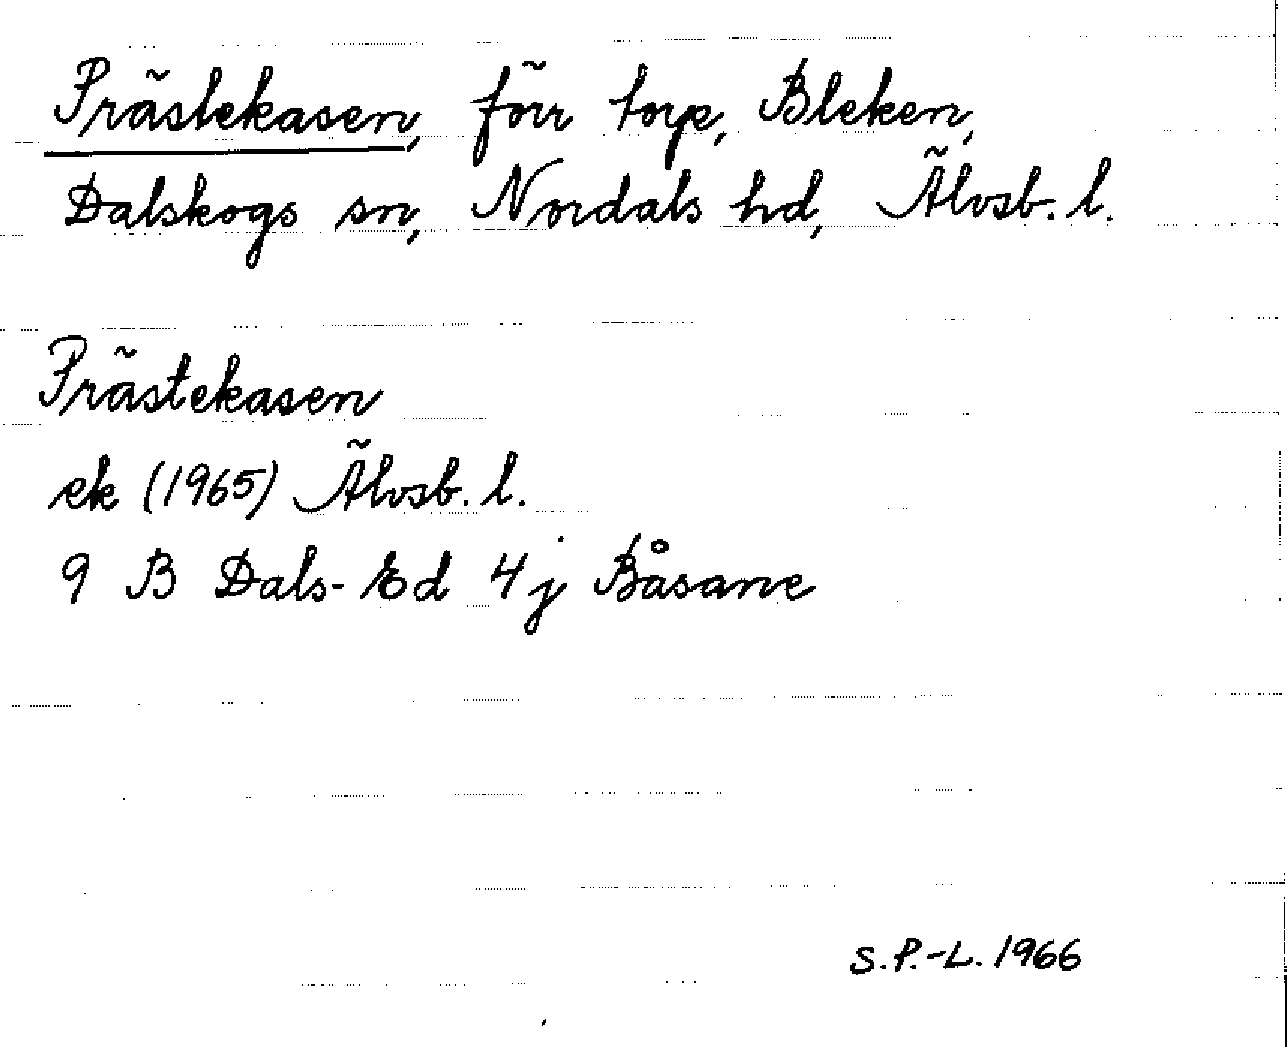 Prästekasen, förr torp, Bleken,
Dalskogs sn, Nordals hd, Älvsb. l.
Prästekasen
ek (1965) Älvsb. l.
9 B Dals-Ed 4j Båsane
S.P.-L. 1966